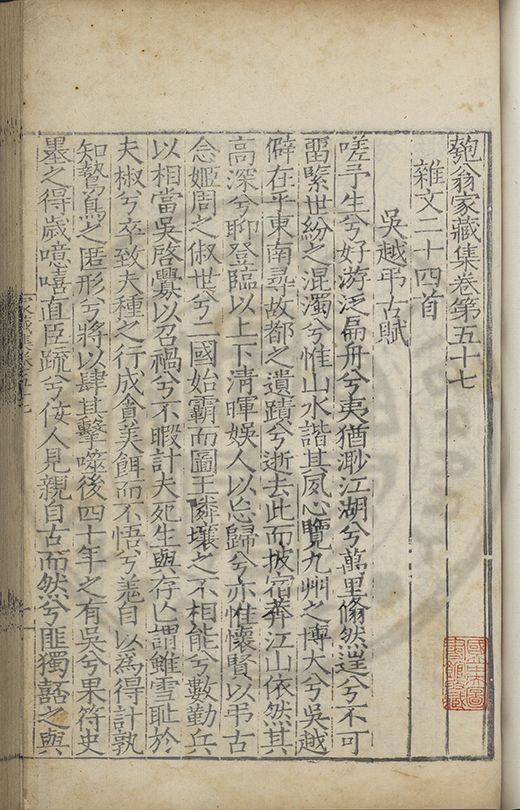 匏翁家藏集卷第五十七
雜文二十四首
吳越弔古賦
嗟予生兮好游泛扁舟兮夷猶渺江湖兮萬里翛然逞兮不可
畱繄世紛之混濁兮惟山水諧其夙心覽九州之博大兮吳越
僻在乎東南尋故都之遺蹟兮逝去此而披宿莽江山依然其
高深兮聊登臨以上下清暉娛人以忘歸兮亦惟懷賢以弔古
念姬周之俶世兮二國始霸而圖王隣壤之不相能兮數勤兵
以相當吳啓釁以召禍兮不暇計夫死生與存亡謂雖雪耻於
夫椒兮卒致夫種之行成貪美餌而不悟兮羌自以爲得計孰
知鷙鳥之匿形兮將以肆其擊噬後四十年之有吳兮果符史
墨之得歲噫嘻直臣疏兮佞人見親自古而然兮匪獨嚭之與